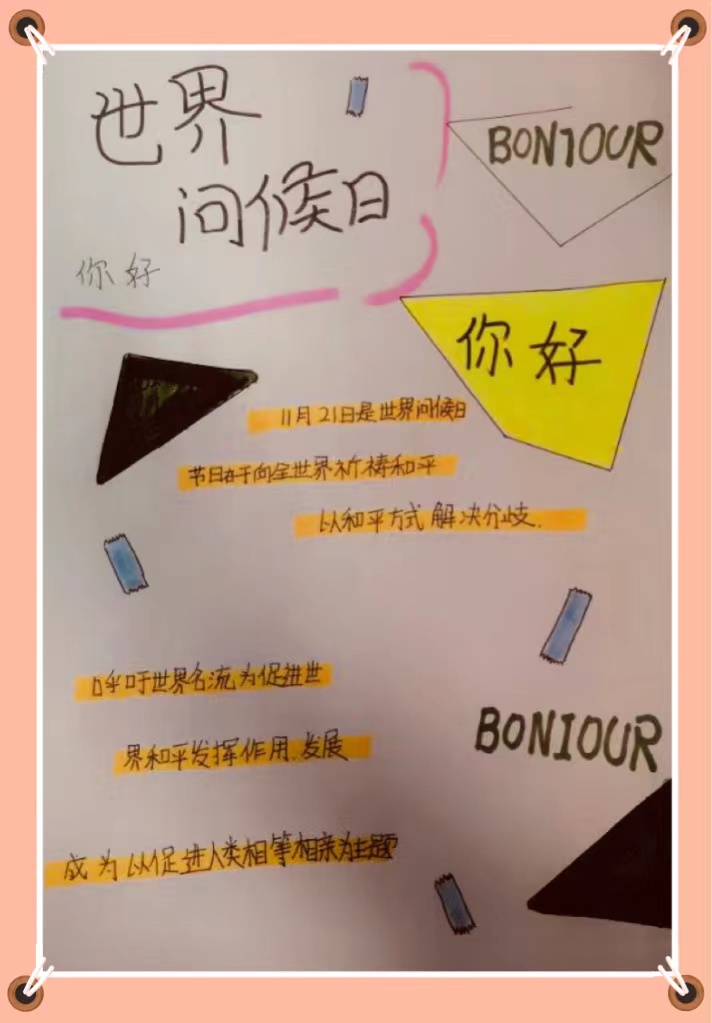 世界
问候日
BONJOUR
你好
你好
11月21日是世界问候日
节日在于向全世界祈祷和平
以和平方式解决分歧.
呼吁世界名流为促进世
界和平发挥作用.发展
BONIOUR
成为以促进人类相等相亲为主题